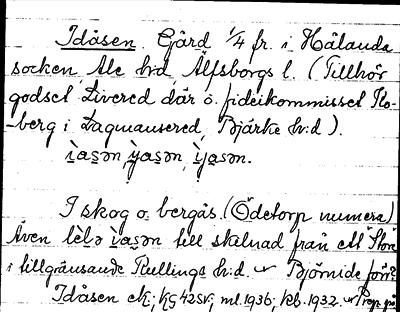 Idåsen. Gård 1/4 fr. i Hålanda
socken, Ale hd, Älfsborgs l. (Tillhör
godset Livered där o. fideikommisset Flo-
-berg i Lagmansered, Bjärke h:d).
ìḁsən, ỳasən, ìyasən.
I skog o. bergås. (Ödetorp numera)
Även lèlə ìasən till skelnad från ett Stora
i tillgränsande Kullings h:d. Björnide
Idåsen ck; KG 42 sv, ml. 1936; kb. 1932.